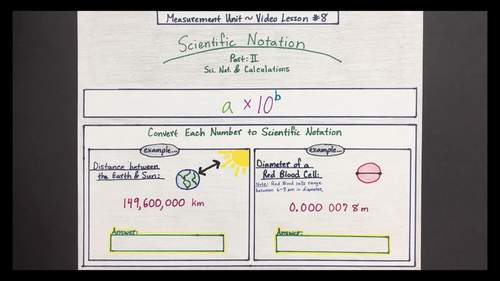 Measurement Unit ~ Video Lesson #8
Scientific Notation
Part: II
Sci. Not. & Calculations
a × 10^b
Convert Each Number to Scientific Notation
example...
Distance between
the Earth & Sun:
149,600,000 km
Answer:
example...
Diameter of a
Red Blood Cell:
Note: Red blood cells range
between 6-8 µm in diameter.
0.000 007 8 m
Answer: